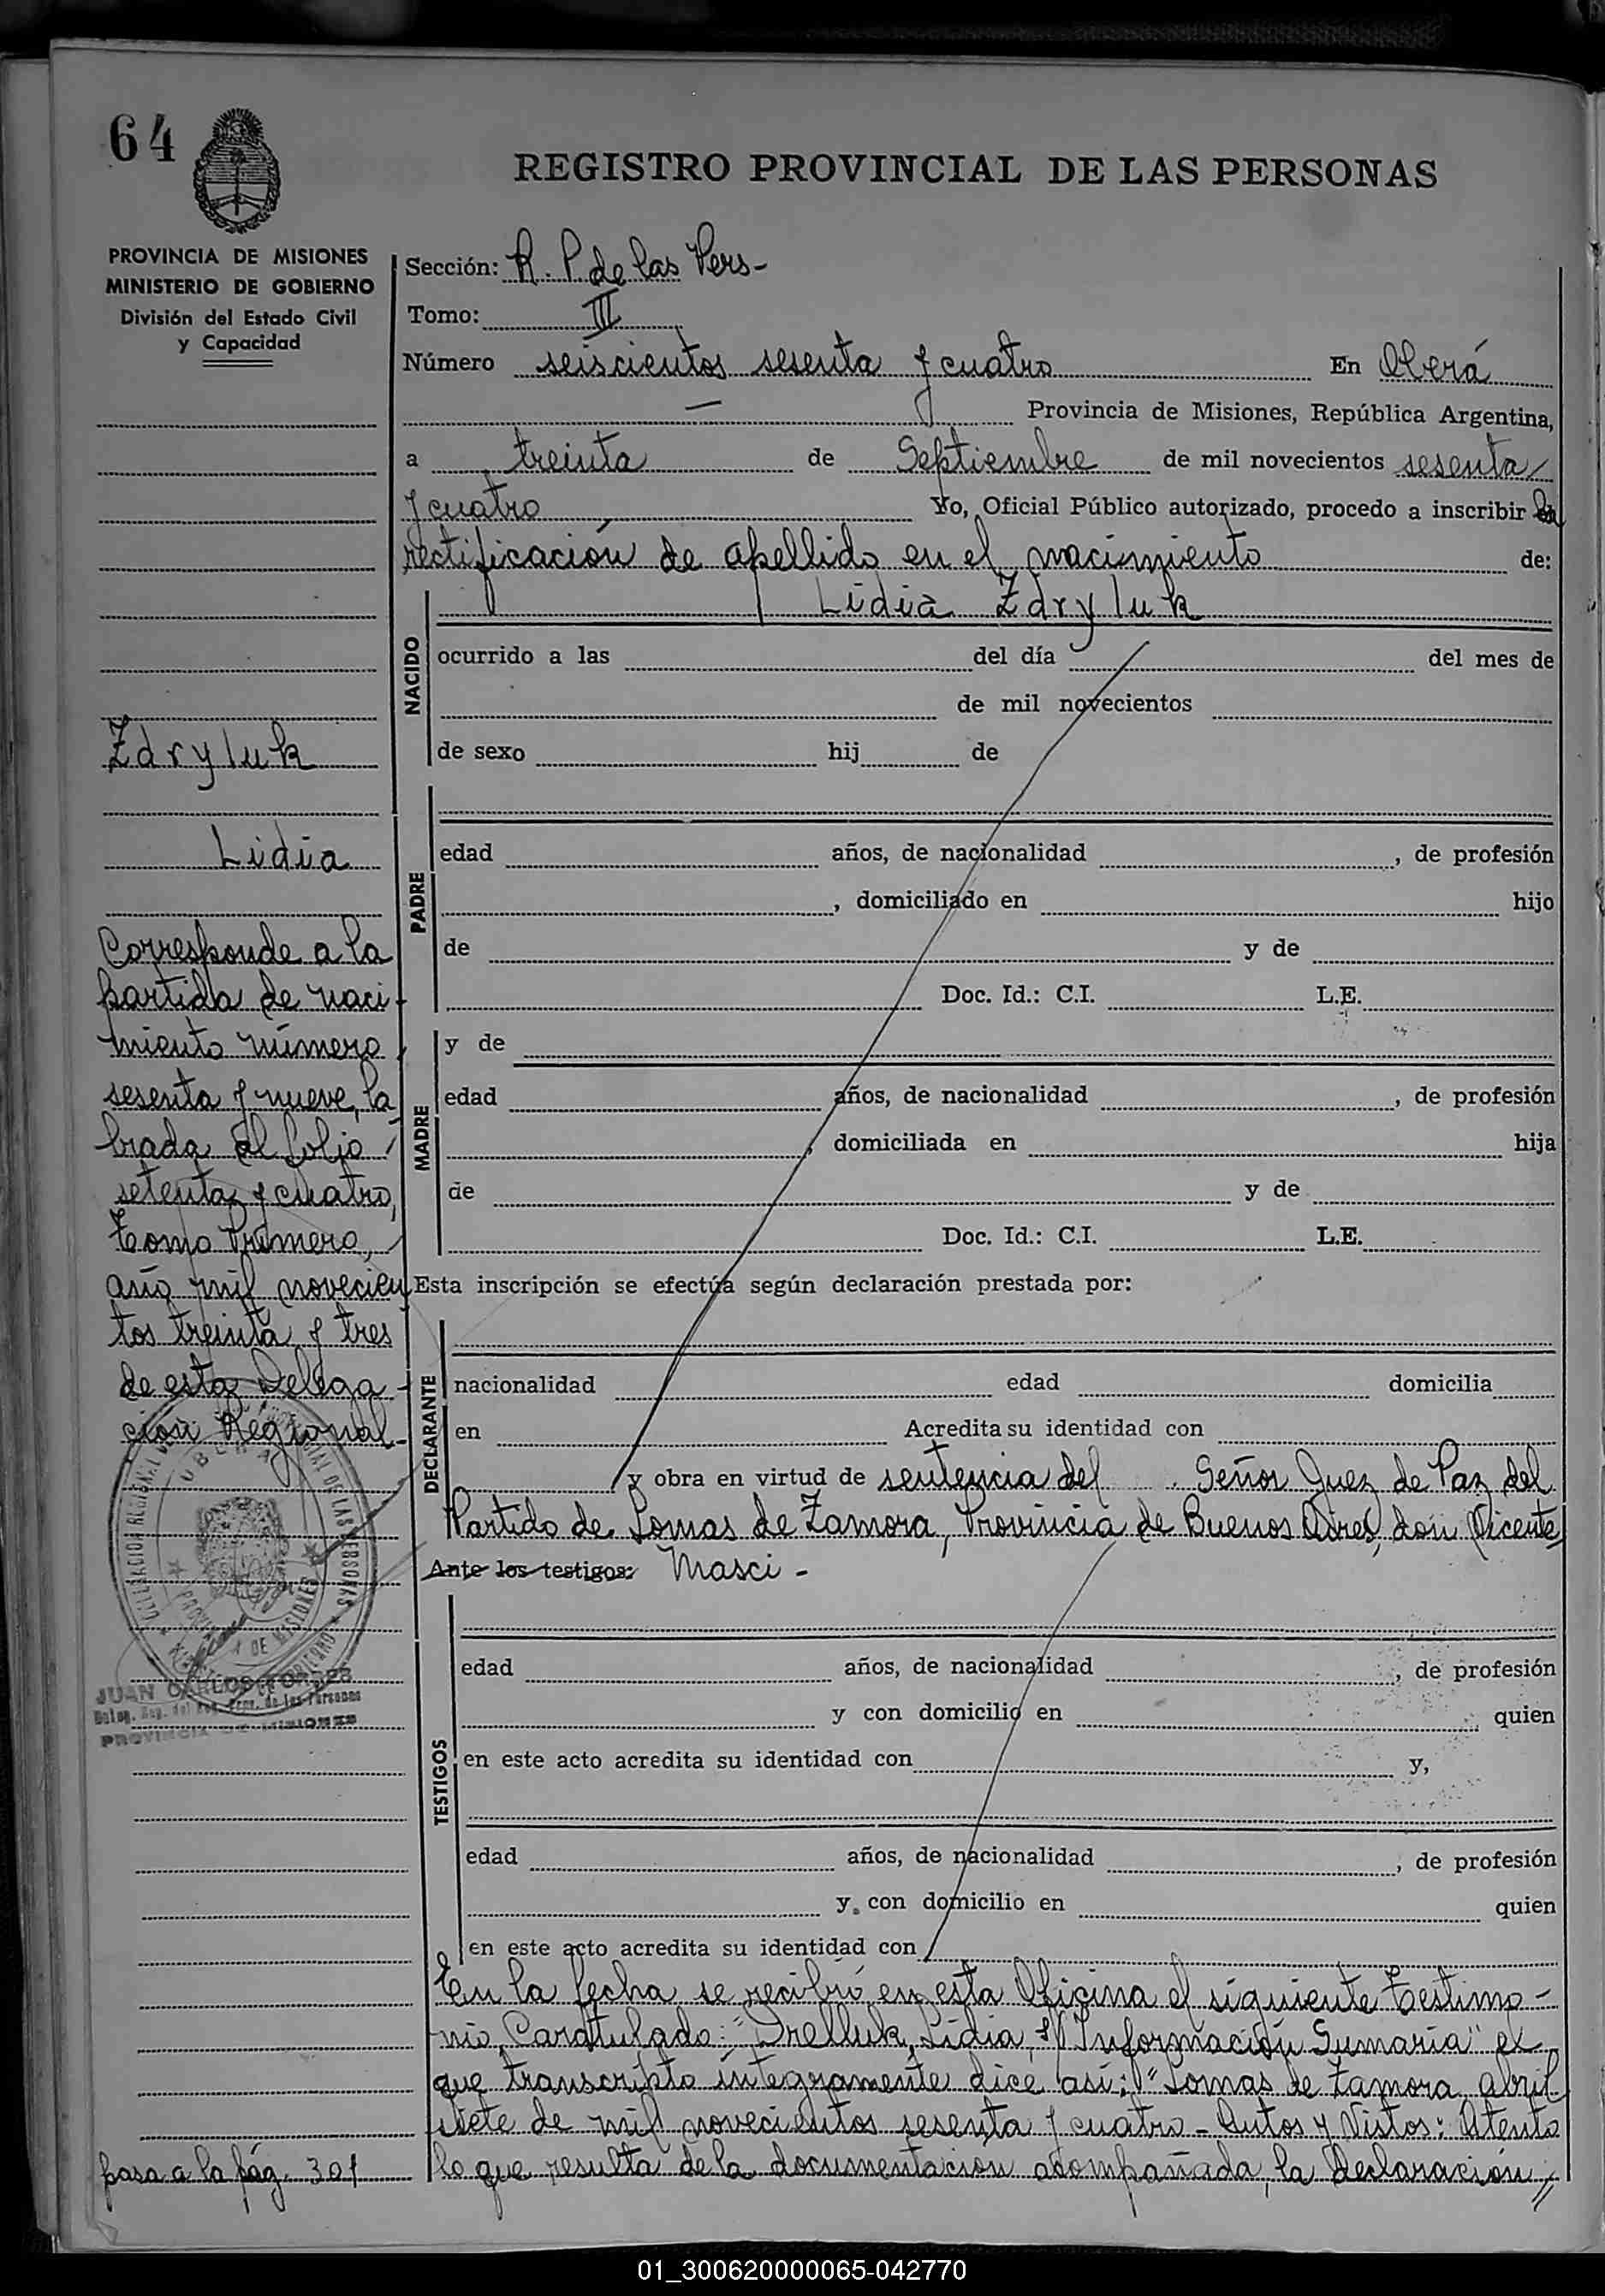 64
REGISTRO PROVINCIAL DE LAS PERSONAS
PROVINCIA DE MISIONES
MINISTERIO DE GOBIERNO
División del Estado Civil
y Capacidad
Sección: R. P. de las Pers-
Tomo: III
Número seiscientos sesenta y cuatro En Oberá
— Provincia de Misiones, República Argentina,
a treinta de Septiembre de mil novecientos sesenta/
y cuatro Yo, Oficial Público autorizado, procedo a inscribir la
rectificación de apellido en el nacimiento de:
Lidia Zdryluk
NACIDO
ocurrido a las del día del mes de
de mil novecientos
de sexo hij de
Zdryluk
Lidia
Corresponde a la
partida de naci-
miento número
sesenta y nueve, la
brada al folio
setenta y cuatro,
Tomo Primero,
año mil novecien
tos treinta y tres
de esta Delega-
ción Regional.
PADRE
edad años, de nacionalidad , de profesión
, domiciliado en hijo
de y de
Doc. Id.: C.I. L.E.
MADRE
y de
edad años, de nacionalidad , de profesión
, domiciliada en hija
de y de
Doc. Id.: C.I. L.E.
Esta inscripción se efectúa según declaración prestada por:
DECLARANTE
nacionalidad edad domicilia
en Acredita su identidad con
y obra en virtud de sentencia del Señor Juez de Paz del
Partido de Lomas de Zamora, Provincia de Buenos Aires, don Vicente
Ante los testigos: Masci -
JUAN CARLOS TORRES
PROVINCIA DE MISIONES
TESTIGOS
edad años, de nacionalidad , de profesión
y con domicilio en quien
en este acto acredita su identidad con y,
edad años, de nacionalidad , de profesión
y con domicilio en quien
en este acto acredita su identidad con
En la fecha se recibió en esta Oficina el siguiente Testimo-
nio, Caratulado: "Drelluk, Lidia, s/ Información Sumaria" el
que transcripto íntegramente dice así: "Lomas de Zamora, abril
siete de mil novecientos sesenta y cuatro - Autos y Vistos: Atento
lo que resulta de la documentación acompañada, la declaración, //
pasa a la pág. 301
01_300620000065-042770